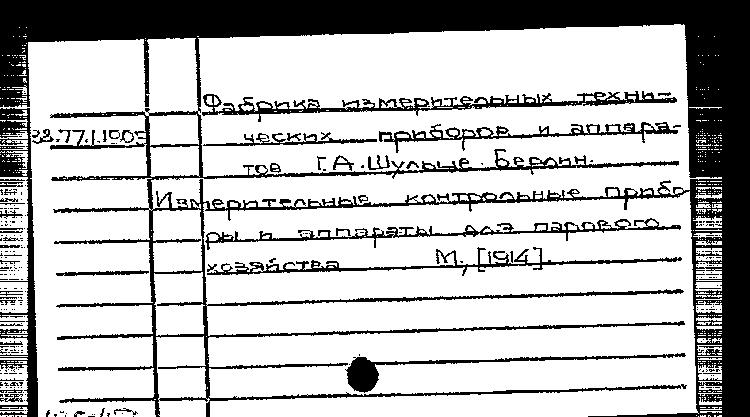 Фабрика измерительных техни-
38.77.1.1903 ческих приборов и аппара-
тов Г.А.Шульце. Берлин.
Измерительные контрольные прибо
ры и аппараты для парового
хозяйства М., [1914].